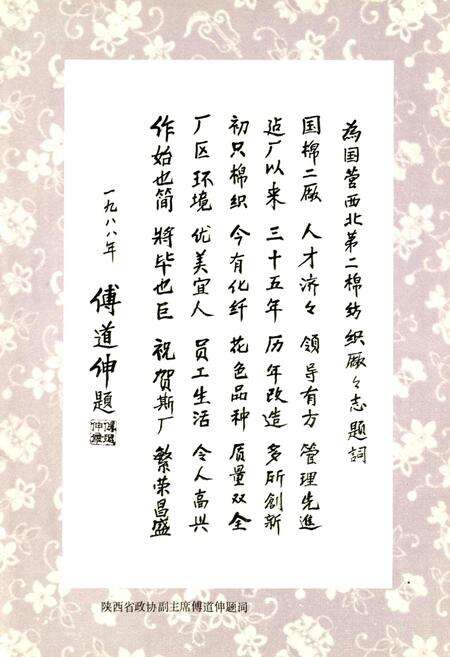 为国营西北第二棉纺织厰々志题詞
国棉二厰 人才济々 领导有方 管理先進
迠厂以来 三十五年 历年改造 多所創新
初只棉织 今有化纤 花色品种 质量双全
厂区环境 优美宜人 员工生活 令人高兴
作始也简 將毕也巨 祝贺斯厂 繁荣昌盛
一九八八年 傅道伸題
陕西省政协副主席傅道伸题词